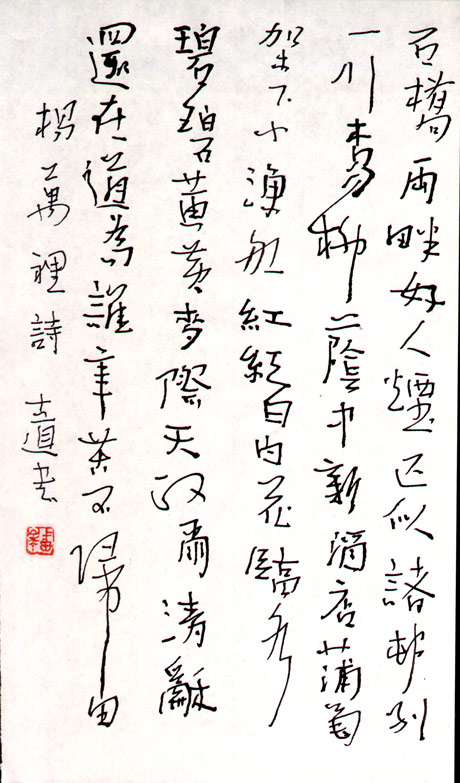 石橋兩畔好人煙匹似諸邨別
一川楊柳陰中新酒店葡萄
架下小漁船紅紅白白花臨水
碧碧黃黃麥際天政爾清龢
還在道為誰辛苦不歸田
楊萬裡詩 道書